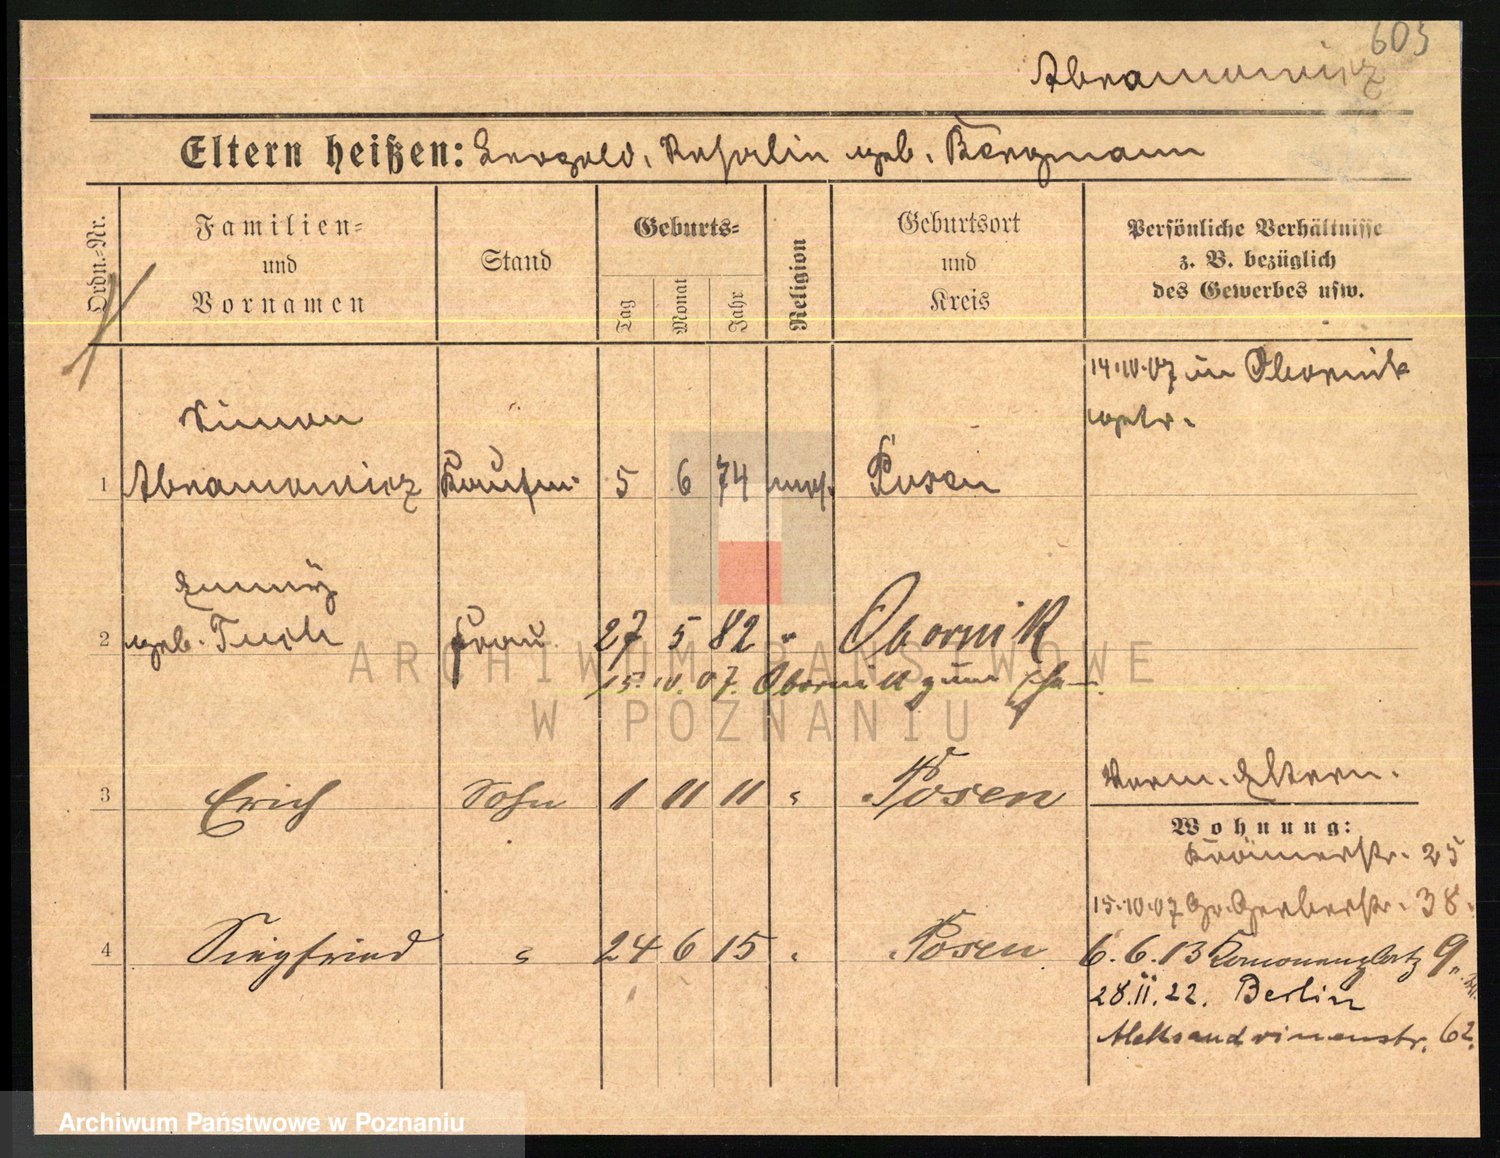 605
Abramowicz
Eltern heißen: Leopold, Rosalin geb. Bergmann
Ordn.-Nr.
Familien-
und
Vornamen
Stand
Geburts-
Tag
Monat
Jahr
Religion
Geburtsort
und
Kreis
Persönliche Verhältnisse
z. B. bezüglich
des Gewerbes usw.
14.10.07 in Obornik
getr.
Simon
1 Abramowicz Kaufm. 5 6 74 mos. Posen
Emmy
2 geb. Tuch Frau 27 5 82 " Obornik
15.10.07. Obornik zum
3 Erich Sohn 1 11 11 " Posen
Verm. Eltern.
Wohnung:
Krämerstr. 25
15.10.07 Gr. Gerberstr. 38.
4 Siegfried " 24 6 15 " Posen
6.6.13 9
28.II.22. Berlin
Aleksandrinenstr. 62.
ARCHIWUM PAŃSTWOWE
W POZNANIU
Archiwum Państwowe w Poznaniu